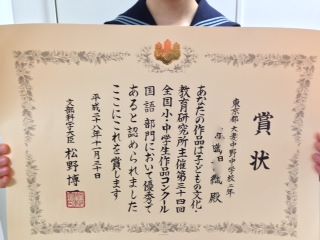 賞状
東京都 大妻中野中学校二年
殿
あなたの作品は子どもの文化
教育研究所主催第三十四回
全国小・中学生作品コンクール
国語部門において優秀で
あると認められました
ここにこれを賞します
平成二十八年十一月二十日
文部科学大臣 松野博一